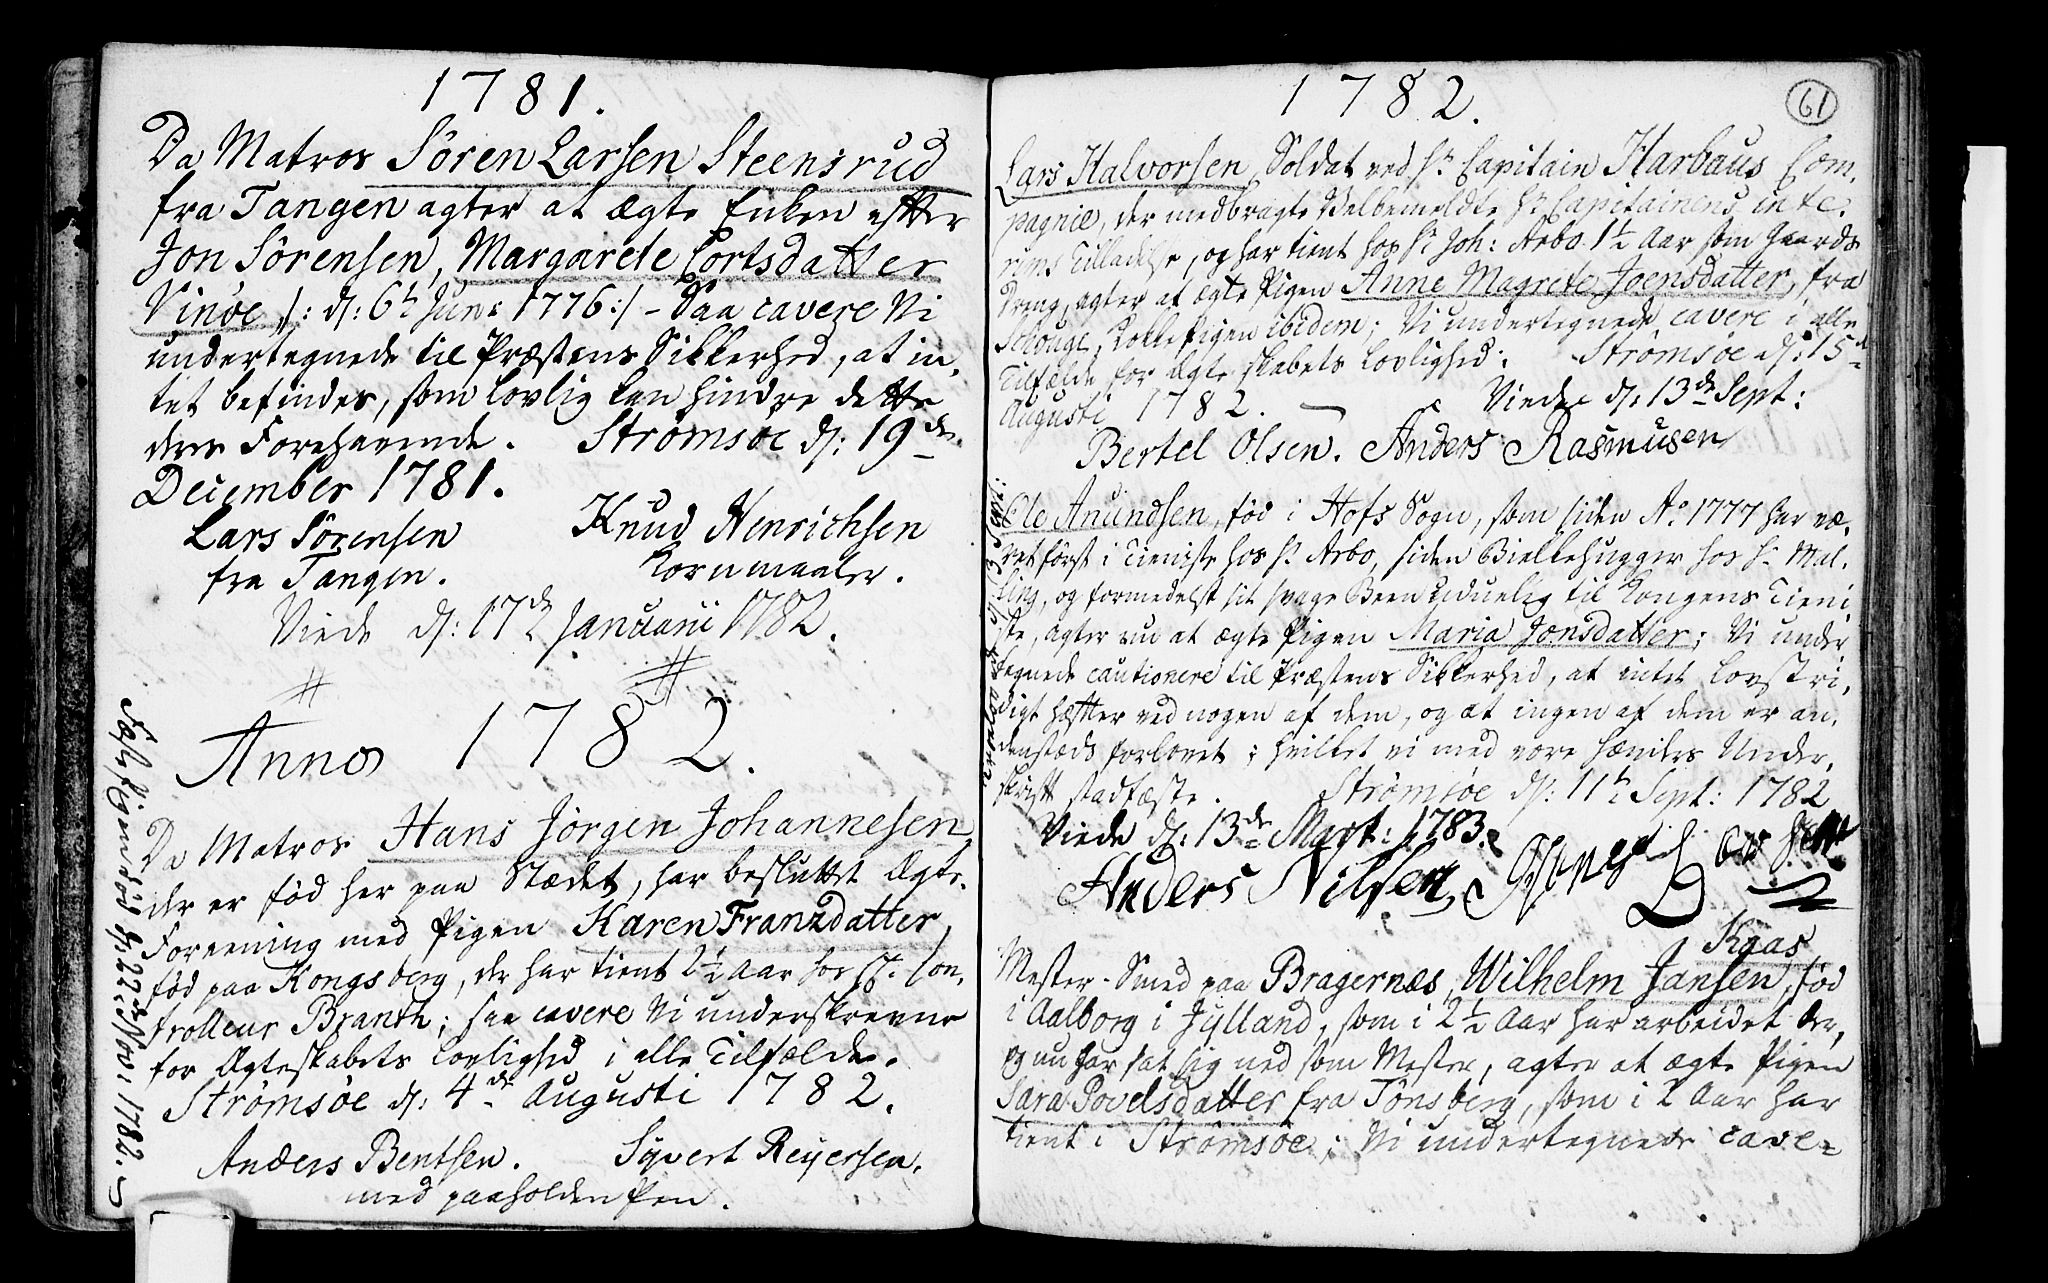 1781.
Da Matros Sören Larsen Steensrud
fra Tangen agter at ægte Enken efter
Jon Sörensen, Margarete Cortsdatter
Vinöe /: d: 6t Jun: 1776 :/ - Saa cavere Vi
undertegnede til Præstens Sikkerhed, at in,
tet befindes, som lovlig kan hindre dette
deres Forehavende. Strömsöe d: 19de
December 1781.
Lars Sörensen Knud Henrichsen
fra Tangen. Kornmaaler.
Viede d: 17de Januarii 1782.
Anno 1782.
Da Matros Hans Jörgen Johannesen,
der er föd her paa Stædet, har besluttet Ægte,
Foreening med Pigen Karen Franzdatter,
föd paa Kongsberg, der har tient 2½ Aar hos Hr. Con,
trolleur Branth; saa cavere Vi underskrevne
for Ægteskabets Lovlighed i alle Tilfælde.
Strömsöe d: 4de Augusti 1782.
Anders Bentsen. Syvert Reyersen.
med paaholden Pen.
d: 22de Nov: 1782.
1782.
61
Lars Halvorsen, Soldat ved Hr. Capitain Harbaus Com,
pagnie, der medbragte Velbemeldte Hr. Capitainens inte,
rims Tilladelse, og har tient hos Hr. Joh: Arbo 1½ Aar som Gaards
dreng, agter at ægte Pigen Anne Magrete Joensdatter, fra
Schouge, Kokkepigen ibidem; Vi undertegnede cavere i alle
Tilfælde for Ægteskabets Lovlighed. Strömsöe d: 15de
Augusti 1782. Viede d: 13de Sept:
Bertel Olsen. Anders Rasmusen
Ole Anundsen, föd i Hofs Sogn, som siden Ao 1777 har væ,
ret först i Tieniste hos Hr. Arbo, siden Biellkehugger hos Hr. Mal,
ling, og formedelst sit svage Been uduelig til Kongens Tieni
ste, agter nu at ægte Pigen Maria Jonsdatter; Vi under
tegnede cautionere til Præstens Sikkerhed, at intet lovstri,
digt hæfter ved nogen af dem, og at ingen af dem er an,
denstæds forlovet; hvilket vi med vore Hænders Under,
skrift stadfæste. Strömsöe d: 11te Sept: 1782
Viede d: 13de Mart: 1783.
Anders Nilsen
Kaas
Mester-Smed paa Bragernæs, Wilhelm Jansen, föd
i Aalborg i Jylland, som i 2½ Aar har arbeidet her,
og nu har sat sig ned som Mester, agter at ægte Pigen
Sara Povelsdatter fra Tönsberg, som i 2 Aar har
tient i Strömsöe; Vi undertegnede cave=